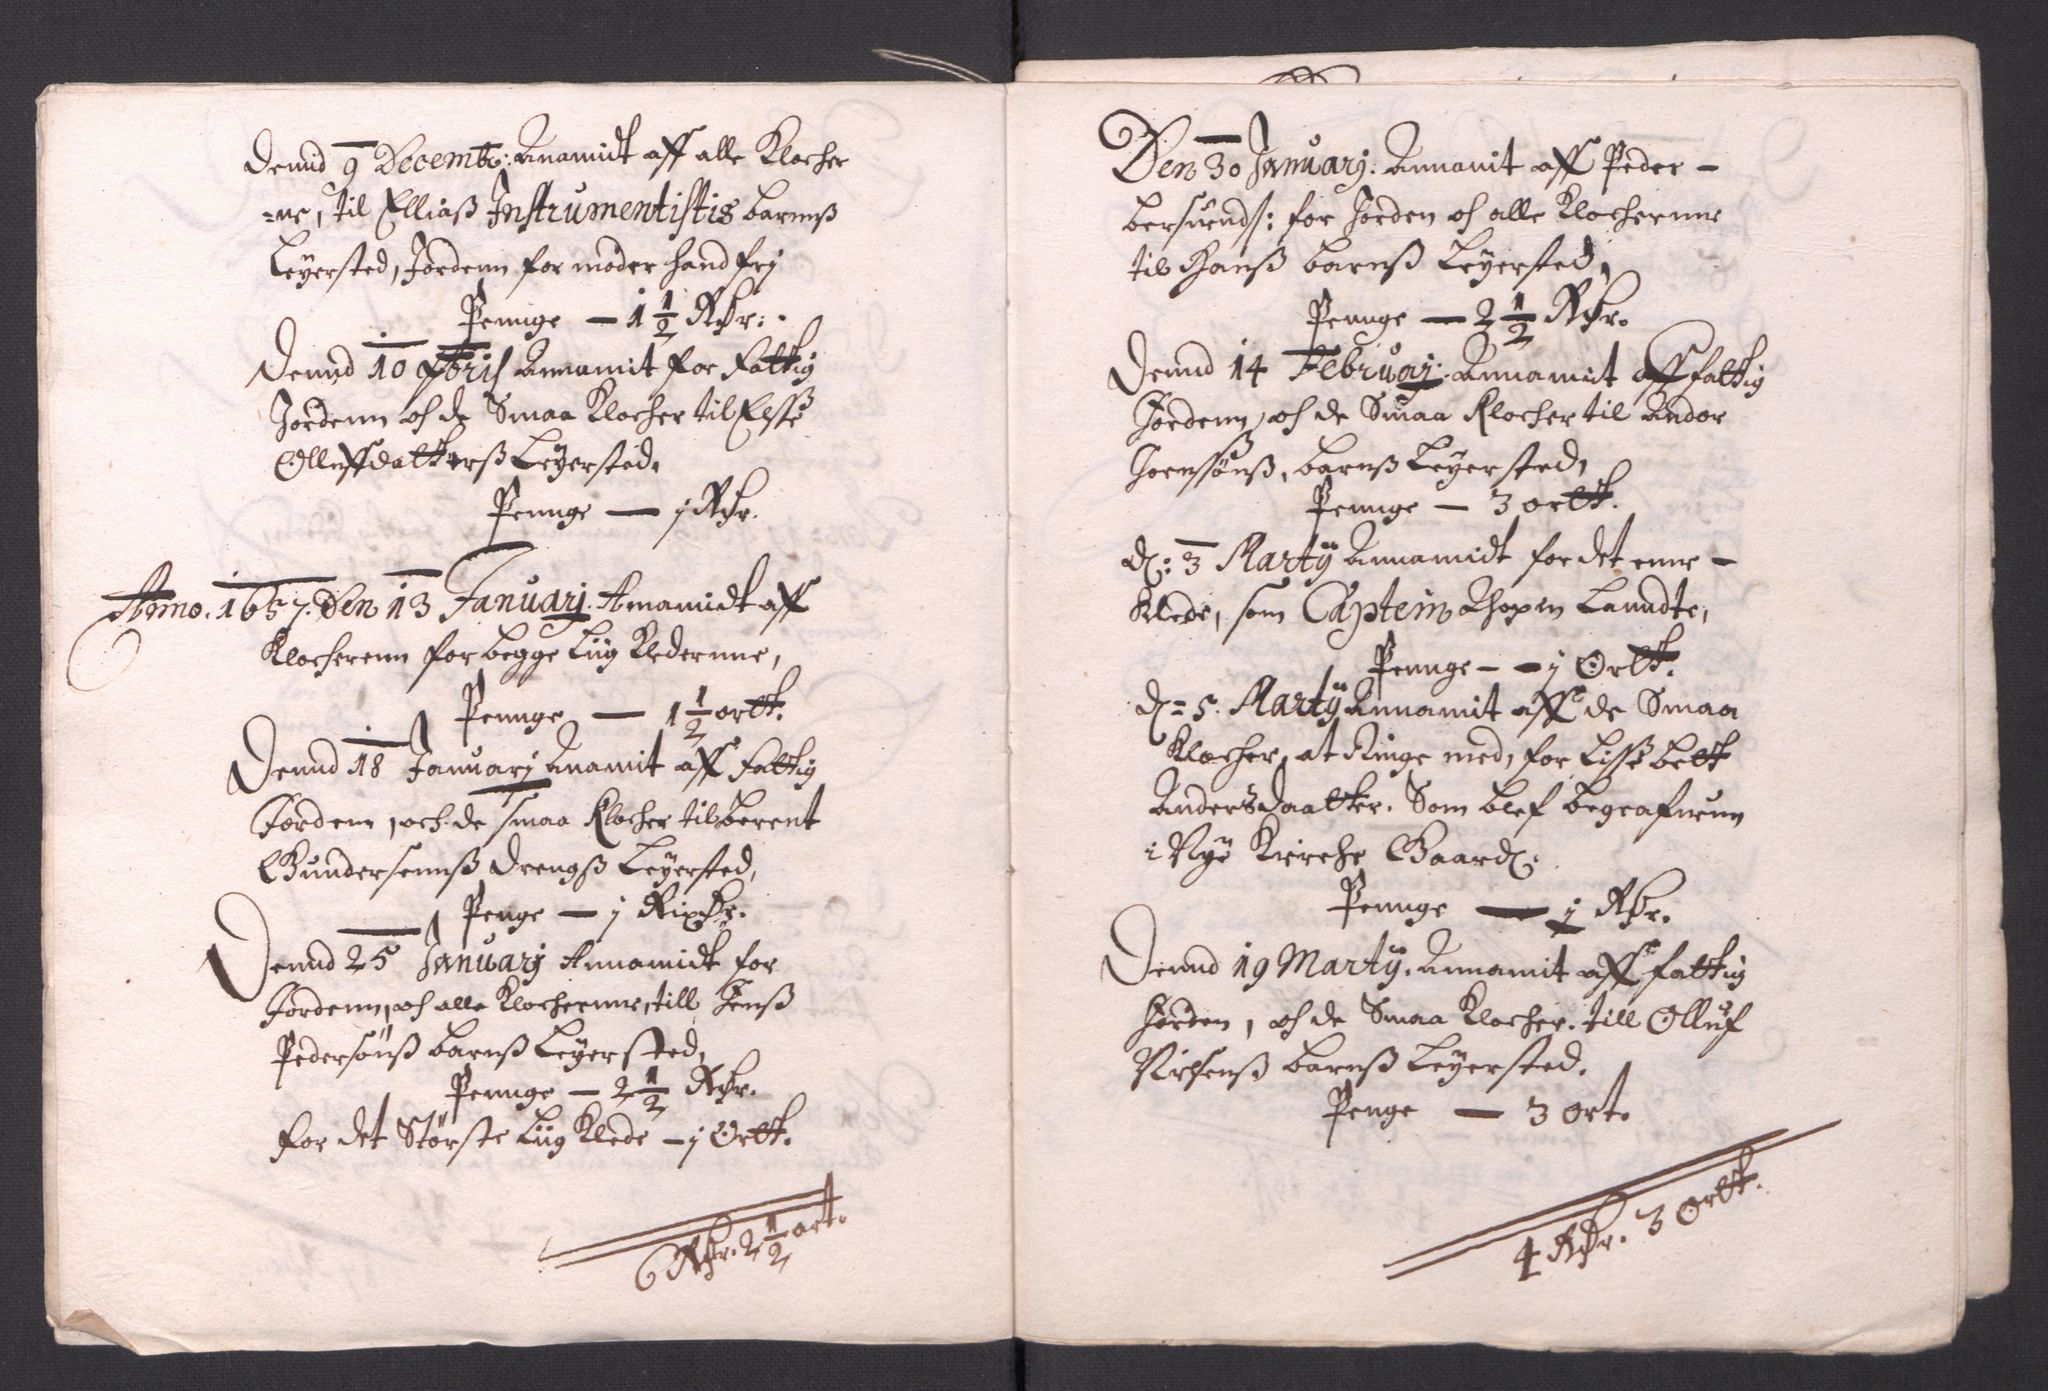 Dennd 9 Decembr: Anamidt aff alle Klocher
=ne, til Elliaß Instrumentistis barnnß
Leyersted, Jordenn for moder hand frj
Pennge — 1 1/2 Rdr:
Dennd 10 Xbris Annamit for Fattig
Jordenn och de Smaa Klocher til Elsse
Olluffsdattherß Leyersted.
Pennge — j Rdr.
Anno. 1657. Den 13 Januarj. Anamidt aff
Klocherenn for begge Liig Kledernne,
Pennge — 1 1/2 ortt.
Dennd 18 Januarj Anamit aff Fattig
Jordenn, och de smaa Klocher til berent
Gundersennß Drengß Leyersted,
Penge — j Rixdr.
Dennd 25 Januarj Annamidt for
Jordenn, och alle Klochernne, till Jenß
Pedersønß barnß Leyersted,
Pennge — 2 1/2 Rdr.
for det Største Liig Klede — j Ortt.
6 Rdr. 2 1/2 ort.
Den 30 Januarj: Annamit aff Peder —
bersuends: for Jorden och alle Klochernne
til Hanß barnß Leyersted,
Pennge — 2 1/2 Rdr.
Dennd 14 Februarj. Annamit aff fattig
Jordenn, och de Smaa Klocher til Andor
Joenssønß, barnß Leyersted,
Pennge — 3 ortt.
D: 3 Martij Annamidt for det enne —
Klede, som Captein Thopen Lanndte,
Pennge — j Ortt.
D= 5. Martij Annamit aff de Smaa
Klocher, at Ringe med, for Lisse bett
Andersdaatter. Som blef begrafuenn
i Nye Kirche Gaard:
Pennge — j Rdr.
Dennd 19 Martij. Annamit aff fattig
Jorden, och de Smaa Klocher. till Olluf
Nielsenß barnß Leyersted.
Penge — 3 Ort.
4 Rdr. 3 Ortt.